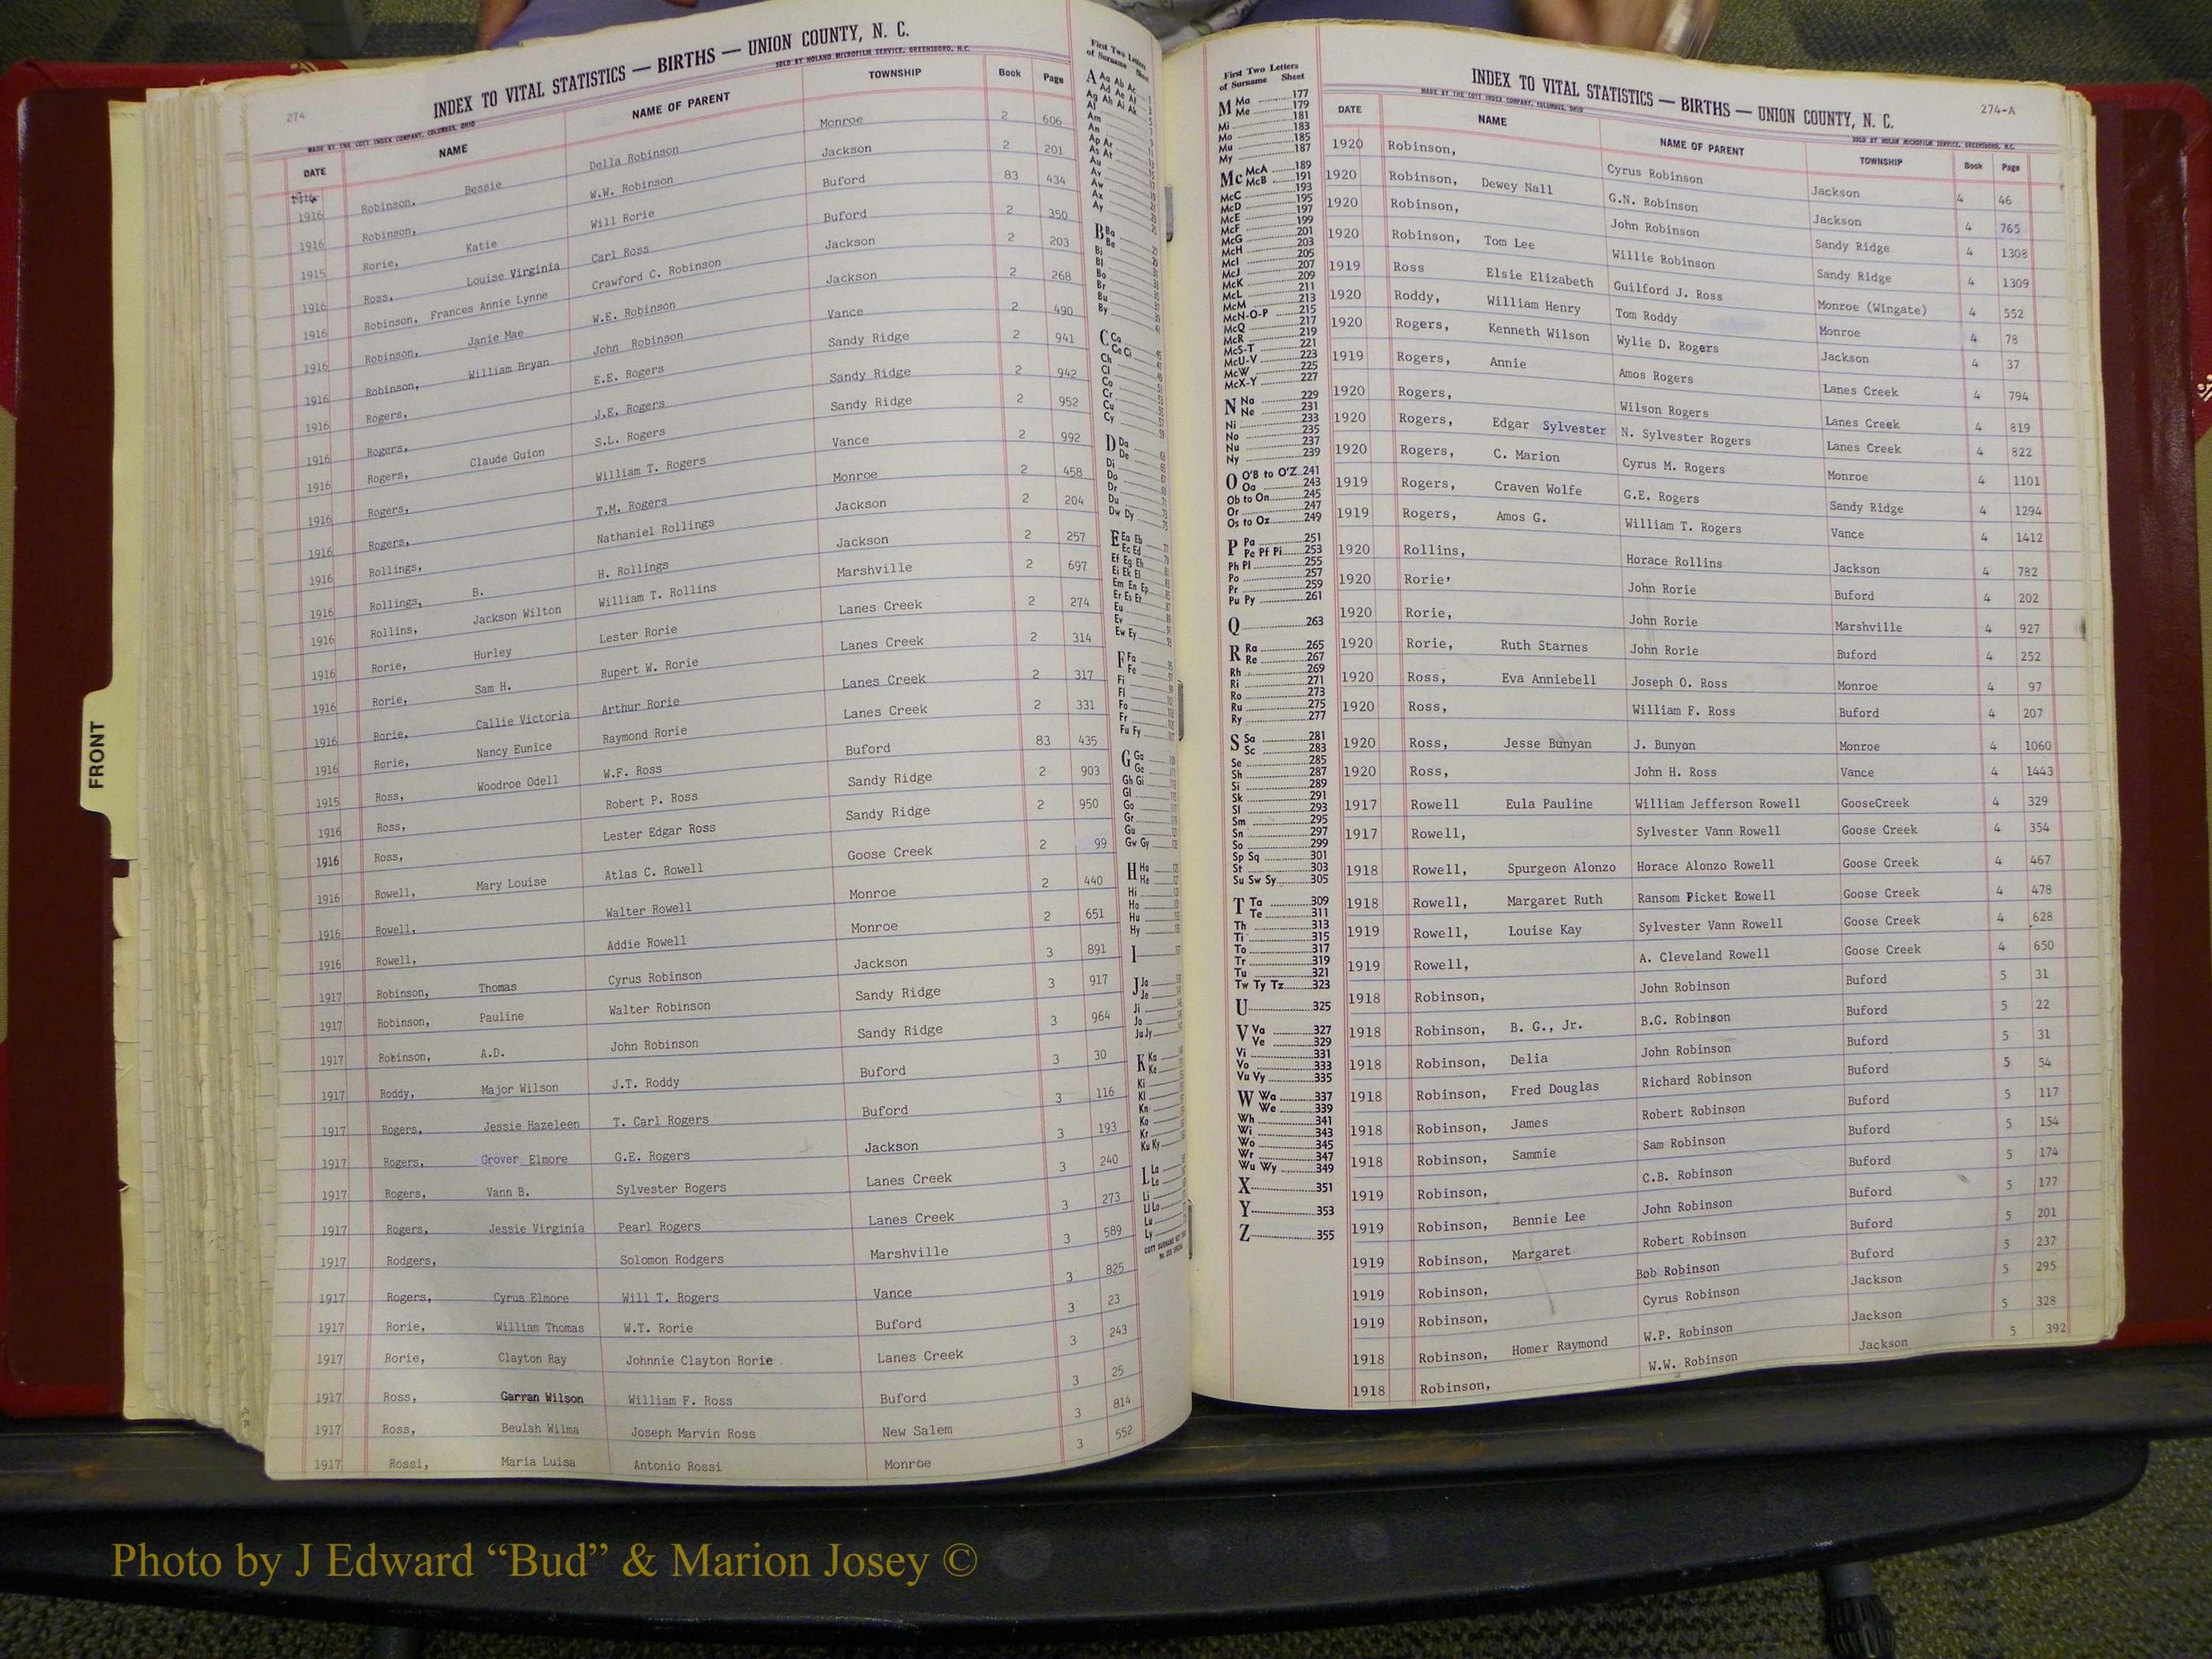 274
INDEX TO VITAL STATISTICS — BIRTHS — UNION COUNTY, N. C.
MADE BY THE COTT INDEX COMPANY, COLUMBUS, OHIO SOLD BY NOLAND MICROFILM SERVICE, GREENSBORO, N.C.
DATE NAME NAME OF PARENT TOWNSHIP Book Page
1916 Robinson, Bessie Della Robinson Monroe 2 606
1916 Robinson, W.W. Robinson Jackson 2 201
1915 Rorie, Katie Will Rorie Buford 83 434
1916 Ross, Louise Virginia Carl Ross Buford 2 350
1916 Robinson, Frances Annie Lynne Crawford C. Robinson Jackson 2 203
1916 Robinson, Janie Mae W.E. Robinson Jackson 2 268
1916 Robinson, William Bryan John Robinson Vance 2 490
1916 Rogers, E.E. Rogers Sandy Ridge 2 941
1916 Rogers, J.E. Rogers Sandy Ridge 2 942
1916 Rogers, Claude Guion S.L. Rogers Sandy Ridge 2 952
1916 Rogers, William T. Rogers Vance 2 992
1916 Rogers, T.M. Rogers Monroe 2 458
1916 Rollings, Nathaniel Rollings Jackson 2 204
1916 Rollings, B. H. Rollings Jackson 2 257
1916 Rollins, Jackson Wilton William T. Rollins Marshville 2 697
1916 Rorie, Hurley Lester Rorie Lanes Creek 2 274
1916 Rorie, Sam H. Rupert W. Rorie Lanes Creek 2 314
1916 Rorie, Callie Victoria Arthur Rorie Lanes Creek 2 317
1916 Rorie, Nancy Eunice Raymond Rorie Lanes Creek 2 331
1915 Ross, Woodroe Odell W.F. Ross Buford 83 435
1916 Ross, Robert P. Ross Sandy Ridge 2 903
1916 Ross, Lester Edgar Ross Sandy Ridge 2 950
1916 Rowell, Mary Louise Atlas C. Rowell Goose Creek 2 99
1916 Rowell, Walter Rowell Monroe 2 440
1916 Rowell, Addie Rowell Monroe 2 651
1917 Robinson, Thomas Cyrus Robinson Jackson 3 891
1917 Robinson, Pauline Walter Robinson Sandy Ridge 3 917
1917 Robinson, A.D. John Robinson Sandy Ridge 3 964
1917 Roddy, Major Wilson J.T. Roddy Buford 3 30
1917 Rogers, Jessie Hazeleen T. Carl Rogers Buford 3 116
1917 Rogers, Grover Elmore G.E. Rogers Jackson 3 193
1917 Rogers, Vann B. Sylvester Rogers Lanes Creek 3 240
1917 Rogers, Jessie Virginia Pearl Rogers Lanes Creek 3 273
1917 Rodgers, Solomon Rodgers Marshville 3 589
1917 Rogers, Cyrus Elmore Will T. Rogers Vance 3 825
1917 Rorie, William Thomas W.T. Rorie Buford 3 23
1917 Rorie, Clayton Ray Johnnie Clayton Rorie Lanes Creek 3 243
1917 Ross, Garran Wilson William F. Ross Buford 3 25
1917 Ross, Beulah Wilma Joseph Marvin Ross New Salem 3 814
1917 Rossi, Maria Luisa Antonio Rossi Monroe 3 552
FRONT
First Two Letters
of Surname Sheet
A Aa Ab Ac
Ad Ae Af
Ag Ah Ai Ak
Al
Am
An
Ap Ar
As At
Au
Av
Aw
Ax
Ay
B Ba
Be
Bi
Bl
Bo
Br
Bu
By
C Ca
Ce Ci
Ch
Cl
Co
Cr
Cu
Cy
D Da
De
Di
Do
Dr
Du
Dw Dy
E Ea Eb
Ec Ed
Ef Eg Eh
Ei Ek El
Em En Ep
Er Es Et
Eu
Ev
Ew Ey
F Fa
Fe
Fi
Fl
Fo
Fr
Fu Fy
G Ga
Ge
Gh Gi
Gl
Go
Gr
Gu
Gw Gy
H Ha
He
Hi
Ho
Hu
Hy
I
J Ja
Je
Ji
Jo
Ju Jy
K Ka
Ke
Ki
Kl
Kn
Ko
Kr
Ku Ky
L La
Le
Li
Ll Lo
Lu
Ly
First Two Letters
of Surname Sheet
M Ma 177
Me 179
Mi 181
Mo 183
Mu 185
My 187
Mc McA 189
McB 191
McC 193
McD 195
McE 197
McF 199
McG 201
McH 203
McI 205
McJ 207
McK 209
McL 211
McM 213
McN-O-P 215
McQ 217
McR 219
McS-T 221
McU-V 223
McW 225
McX-Y 227
N Na 229
Ne 231
Ni 233
No 235
Nu 237
Ny 239
O O'B to O'Z 241
Oa 243
Ob to On 245
Or 247
Os to Oz 249
P Pa 251
Pe Pf Pi 253
Ph Pl 255
Po 257
Pr 259
Pu Py 261
Q 263
R Ra 265
Re 267
Rh 269
Ri 271
Ro 273
Ru 275
Ry 277
S Sa 281
Sc 283
Se 285
Sh 287
Si 289
Sk 291
Sl 293
Sm 295
Sn 297
So 299
Sp Sq 301
St 303
Su Sw Sy 305
T Ta 309
Te 311
Th 313
Ti 315
To 317
Tr 319
Tu 321
Tw Ty Tz 323
U 325
V Va 327
Ve 329
Vi 331
Vo 333
Vu Vy 335
W Wa 337
We 339
Wh 341
Wi 343
Wo 345
Wr 347
Wu Wy 349
X 351
Y 353
Z 355
INDEX TO VITAL STATISTICS — BIRTHS — UNION COUNTY, N. C. 274-A
MADE BY THE COTT INDEX COMPANY, COLUMBUS, OHIO SOLD BY NOLAN MICROFILM SERVICE, GREENSBORO, N.C.
DATE NAME NAME OF PARENT TOWNSHIP Book Page
1920 Robinson, Cyrus Robinson Jackson 4 46
1920 Robinson, Dewey Nall G.N. Robinson Jackson 4 765
1920 Robinson, John Robinson Sandy Ridge 4 1308
1920 Robinson, Tom Lee Willie Robinson Sandy Ridge 4 1309
1919 Ross Elsie Elizabeth Guilford J. Ross Monroe (Wingate) 4 552
1920 Roddy, William Henry Tom Roddy Monroe 4 78
1920 Rogers, Kenneth Wilson Wylie D. Rogers Jackson 4 37
1919 Rogers, Annie Amos Rogers Lanes Creek 4 794
1920 Rogers, Wilson Rogers Lanes Creek 4 819
1920 Rogers, Edgar Sylvester N. Sylvester Rogers Lanes Creek 4 822
1920 Rogers, C. Marion Cyrus M. Rogers Monroe 4 1101
1919 Rogers, Craven Wolfe G.E. Rogers Sandy Ridge 4 1294
1919 Rogers, Amos G. William T. Rogers Vance 4 1412
1920 Rollins, Horace Rollins Jackson 4 782
1920 Rorie' John Rorie Buford 4 202
1920 Rorie, John Rorie Marshville 4 927
1920 Rorie, Ruth Starnes John Rorie Buford 4 252
1920 Ross, Eva Anniebell Joseph O. Ross Monroe 4 97
1920 Ross, William F. Ross Buford 4 207
1920 Ross, Jesse Bunyan J. Bunyan Monroe 4 1060
1920 Ross, John H. Ross Vance 4 1443
1917 Rowell Eula Pauline William Jefferson Rowell GooseCreek 4 329
1917 Rowell, Sylvester Vann Rowell Goose Creek 4 354
1918 Rowell, Spurgeon Alonzo Horace Alonzo Rowell Goose Creek 4 467
1918 Rowell, Margaret Ruth Ransom Picket Rowell Goose Creek 4 478
1919 Rowell, Louise Kay Sylvester Vann Rowell Goose Creek 4 628
1919 Rowell, A. Cleveland Rowell Goose Creek 4 650
1918 Robinson, John Robinson Buford 5 31
1918 Robinson, B. G., Jr. B.G. Robinson Buford 5 22
1918 Robinson, Delia John Robinson Buford 5 31
1918 Robinson, Fred Douglas Richard Robinson Buford 5 54
1918 Robinson, James Robert Robinson Buford 5 117
1918 Robinson, Sammie Sam Robinson Buford 5 154
1919 Robinson, C.B. Robinson Buford 5 174
1919 Robinson, Bennie Lee John Robinson Buford 5 177
1919 Robinson, Margaret Robert Robinson Buford 5 201
1919 Robinson, Bob Robinson Buford 5 237
1919 Robinson, Cyrus Robinson Jackson 5 295
1918 Robinson, Homer Raymond W.P. Robinson Jackson 5 328
1918 Robinson, W.W. Robinson Jackson 5 392
Photo by J Edward “Bud” & Marion Josey ©